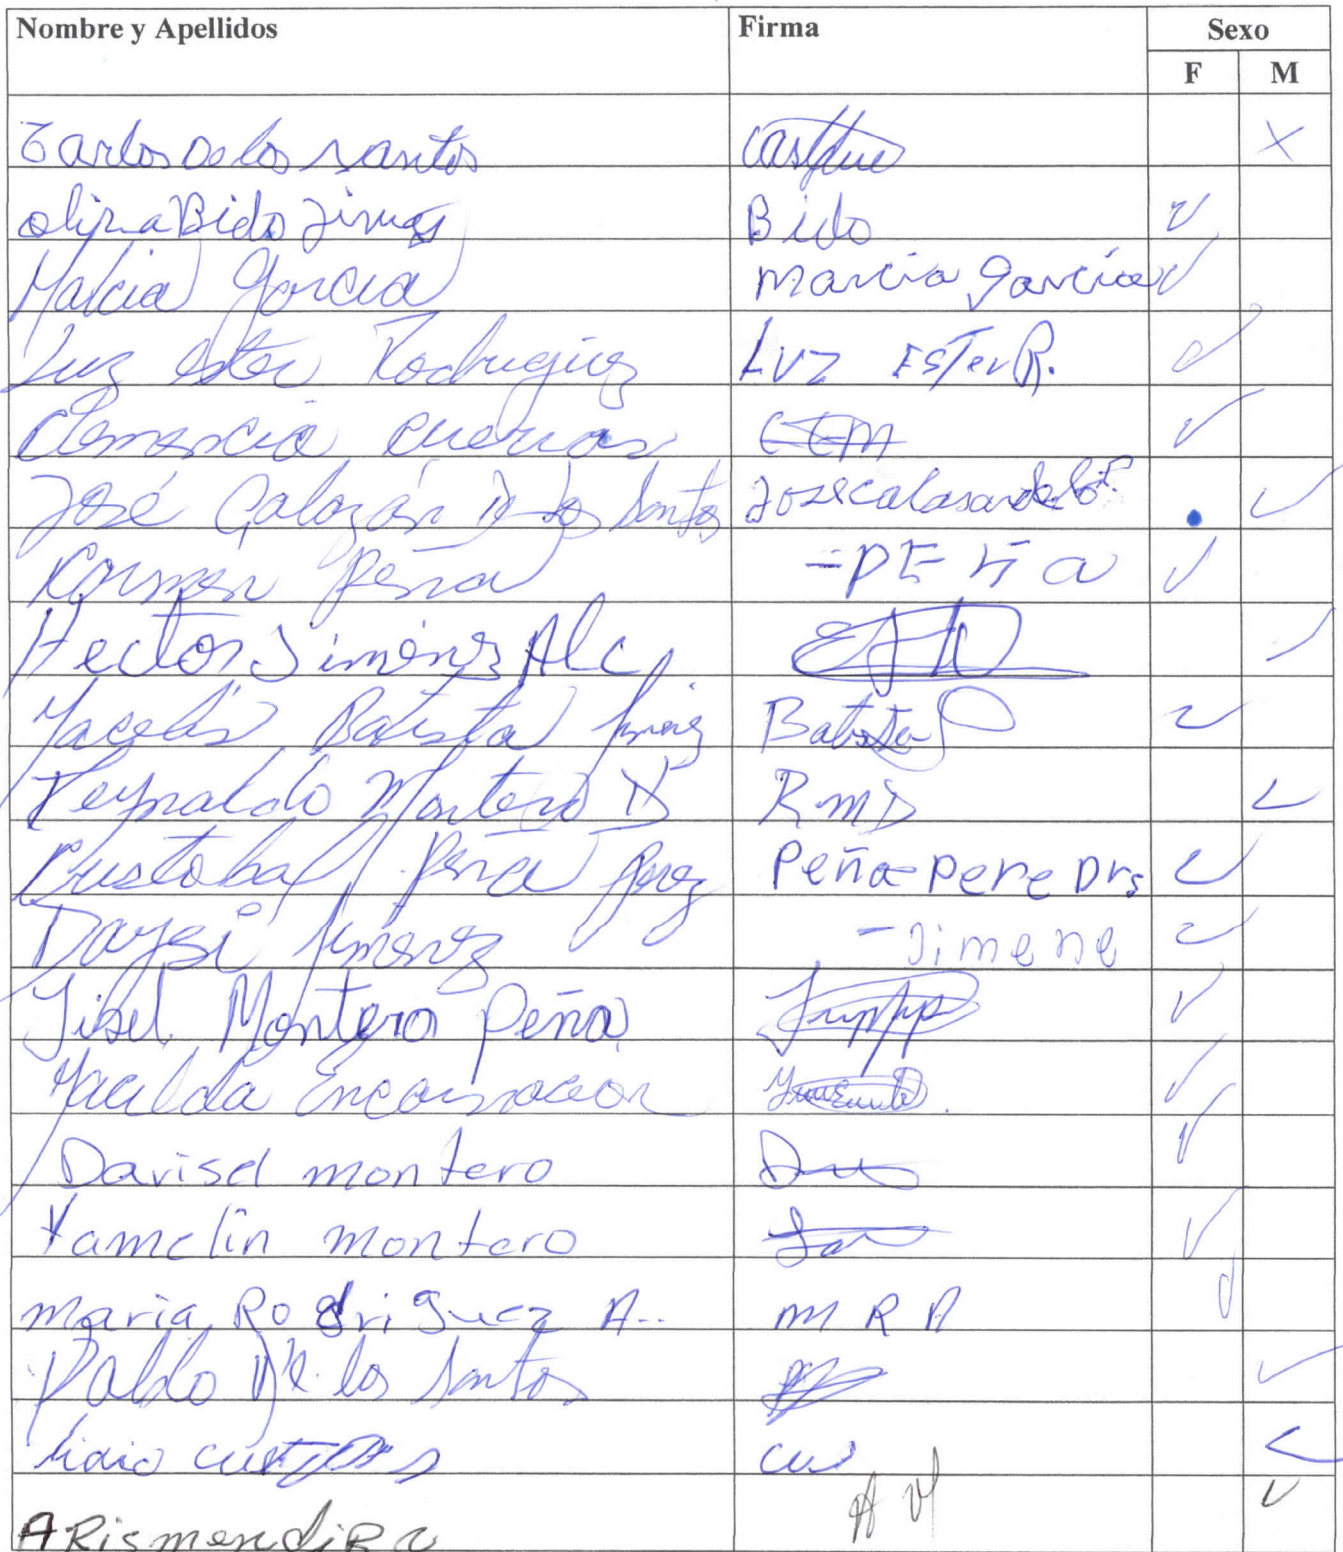 Nombre y Apellidos Firma Sexo
F M
Carlos De los santos
Bido Bido
Malcia Garcia Marcia García
Luz ester Rodriguez LUZ ESTER R.
Clemencia cuevas
José Calazán D los Santos
Carmen Peña PEÑA
Hector Jiménez Alc
Batista Jiménez Batista
Reynaldo Montero D RMD
Cristobal Peña Perez Peña Pere Drs
Daysi Jimenez - Jimene
Yisel Montero Peña
Encarnacion
Davisel montero
Yamelin montero
Maria Rodriguez A.. M R A
Pablo De los Santos
cu